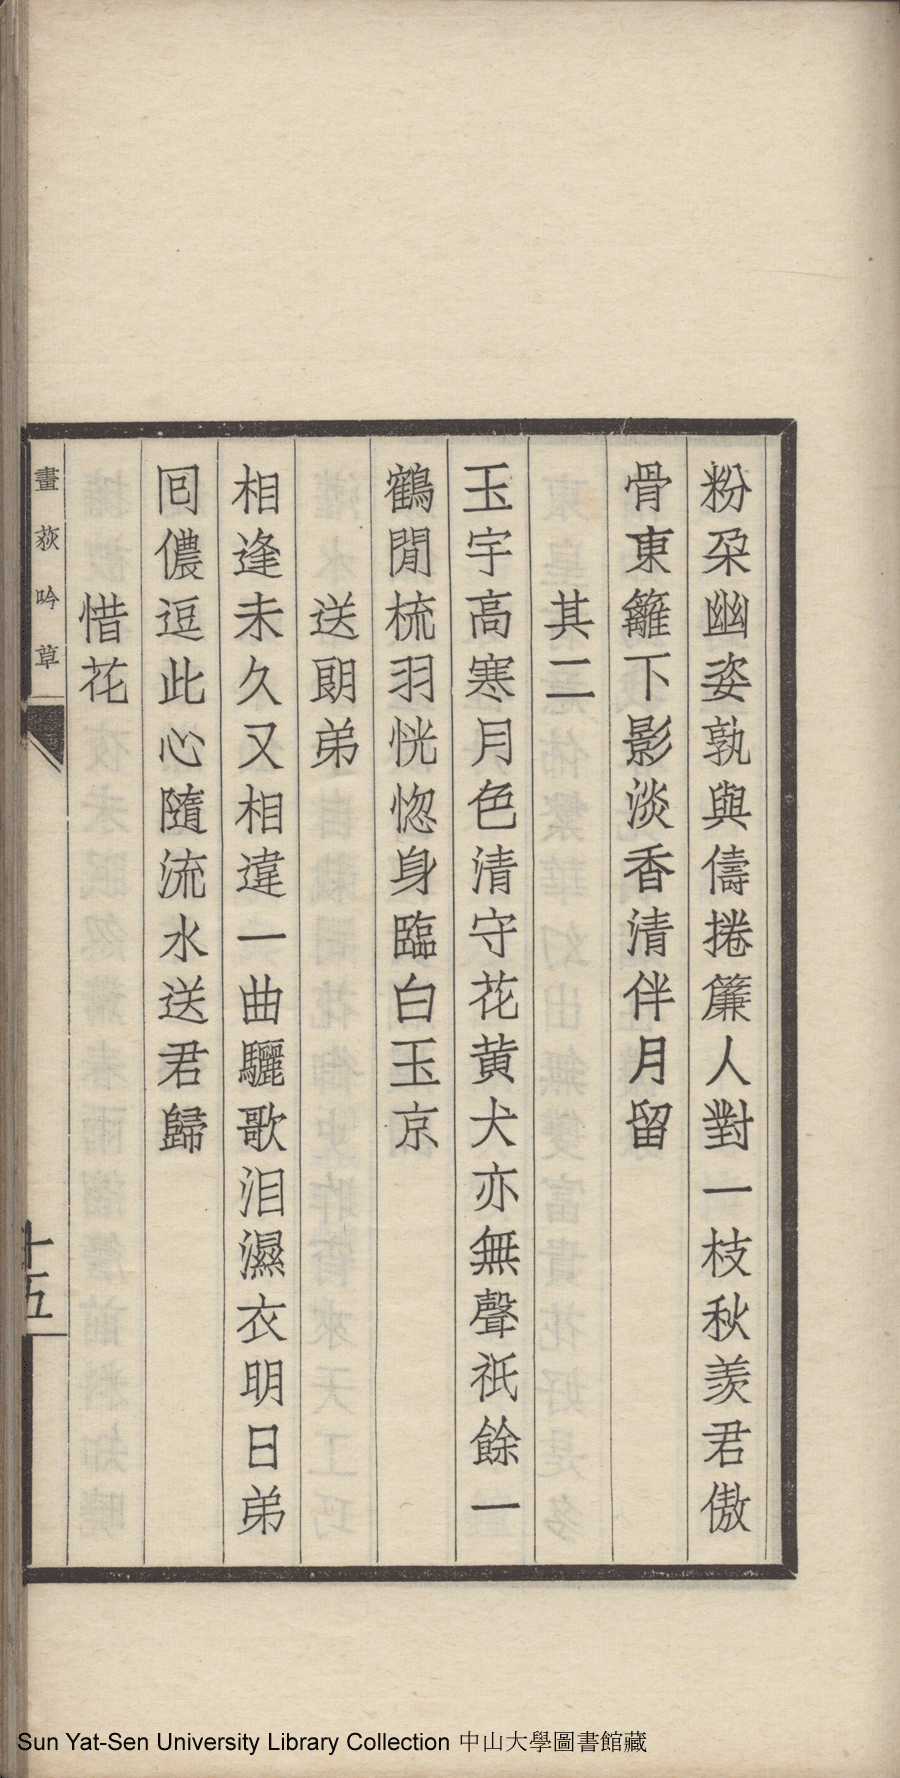 粉朶幽姿孰與儔捲簾人對一枝秋羨君傲
骨東籬下影淡香清伴月留
其二
玉宇高寒月色清守花黄犬亦無聲祇餘一
鶴閒梳羽恍惚身臨白玉京
送朗弟
相逢未久又相違一曲驪歌泪濕衣明日弟
囘儂逗此心隨流水送君歸
惜花
畫荻吟草
十五
Sun Yat-Sen University Library Collection 中山大學圖書館藏